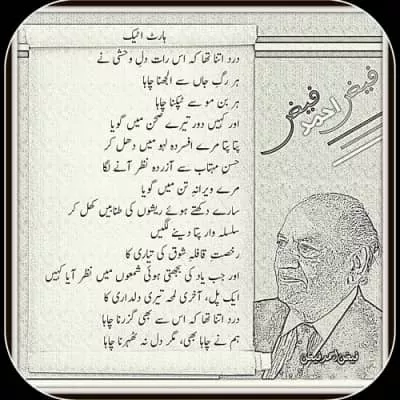 ہارٹ اٹیک
درد اتنا تھا کہ اس رات دلِ وحشی نے
ہر رگِ جاں سے الجھنا چاہا
ہر بن مو سے ٹپکنا چاہا
اور کہیں دور تیرے صحن میں گویا
پتا پتا مرے افسردہ لہو میں دھل کر
حسن مہتاب سے آزردہ نظر آنے لگا
مرے ویرانہ تن میں گویا
سارے دکھتے ہوئے ریشوں کی طنابیں کھل کر
سلسلہ وار پتا دینے لگیں
رخصتِ قافلہ شوق کی تیاری کا
اور جب یاد کی بجھتی ہوئی شمعوں میں نظر آیا کہیں
ایک پل، آخری لمحہ تیری دلداری کا
درد اتنا تھا کہ اس سے بھی گزرنا چاہا
ہم نے چاہا بھی، مگر دل نہ ٹھہرنا چاہا
فیض احمد فیض
فیض احمد فیض